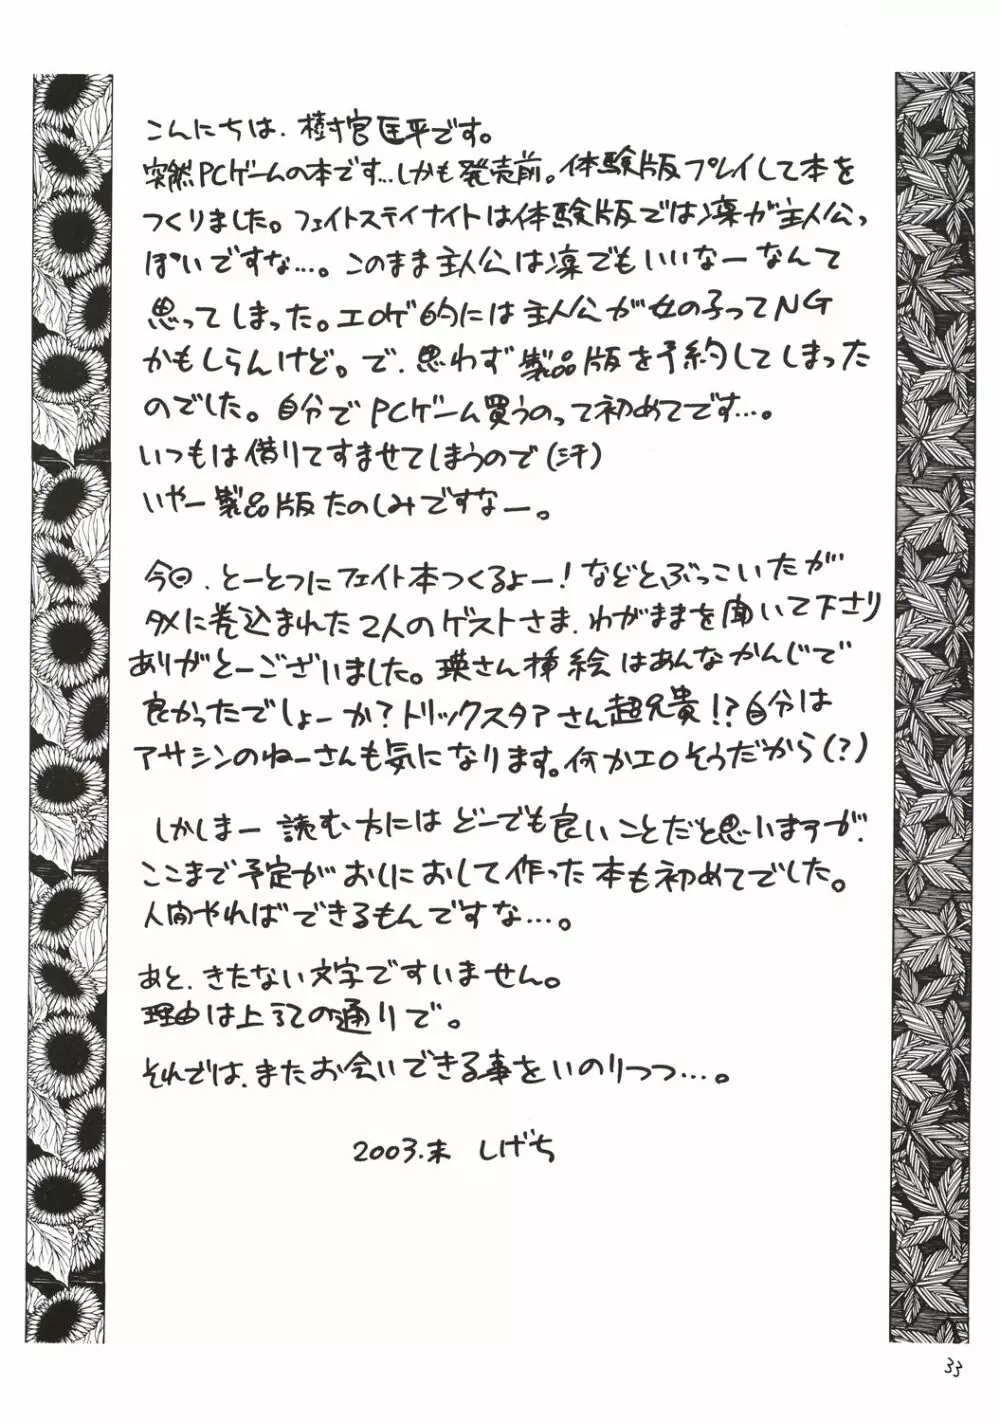 こんにちは、樹宮匡平です。
突然PCゲームの本です…しかも発売前。体験版プレイして本を
つくりました。フェイトステイナイトは体験版では凛が主人公っ
ぽいですな…。このまま主人公は凛でもいいなーなんて
思ってしまった。エロゲ的には主人公が女の子ってNG
かもしらんけど。で、思わず製品版を予約してしまった
のでした。自分でPCゲーム買うのって初めてです…。
いつもは借りてすませてしまうので(汗)
いやー製品版たのしみですなー。
今回、とーとつにフェイト本つくるよー!などとぶっこいたが
タメに巻込まれた2人のゲストさま、わがままを聞いて下さり
ありがとーございました。瑛さん挿絵はあんなかんじで
良かったでしょーか?トリックスタアさん超兄貴!?自分は
アサシンのねーさんも気になります。何かエロそうだから(?)
しかしまー読む方にはどーでも良いことだと思いますが、
ここまで予定がおしにおして作った本も初めてでした。
人間やればできるもんですな…。
あと、きたない文字ですいません。
理由は上記の通りで。
それでは、またお会いできる事をいのりつつ…。
2003.末 しげち
33